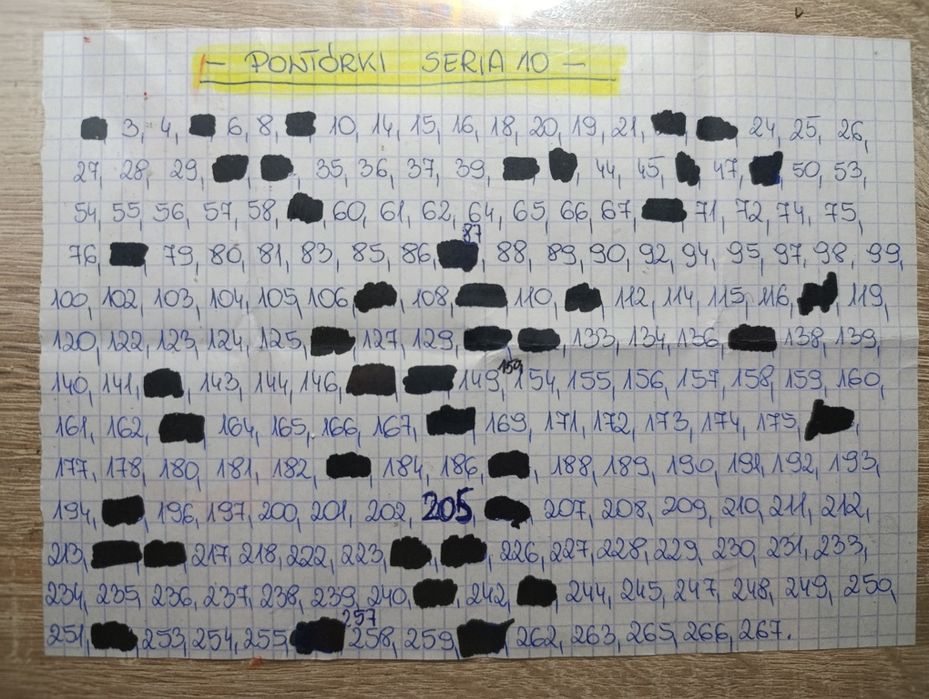 - POWTÓRKI SERIA 10 -
3, 4, 6, 8, 10, 14, 15, 16, 18, 20, 19, 21, 24, 25, 26,
27, 28, 29, 35, 36, 37, 39, 44, 45, 47, 50, 53,
54, 55, 56, 57, 58, 60, 61, 62, 64, 65, 66, 67, 71, 72, 74, 75,
76, 79, 80, 81, 83, 85, 86, 87, 88, 89, 90, 92, 94, 95, 97, 98, 99,
100, 102, 103, 104, 105, 106, 108, 110, 112, 114, 115, 116, 119,
120, 122, 123, 124, 125, 127, 129, 133, 134, 136, 138, 139,
140, 141, 143, 144, 146, 149, 150, 154, 155, 156, 157, 158, 159, 160,
161, 162, 164, 165, 166, 167, 169, 171, 172, 173, 174, 175,
177, 178, 180, 181, 182, 184, 186, 188, 189, 190, 191, 192, 193,
194, 196, 197, 200, 201, 202, 205, 207, 208, 209, 210, 211, 212,
213, 217, 218, 222, 223, 226, 227, 228, 229, 230, 231, 233,
234, 235, 236, 237, 238, 239, 240, 242, 244, 245, 247, 248, 249, 250,
251, 253, 254, 255, 257, 258, 259, 262, 263, 265, 266, 267.